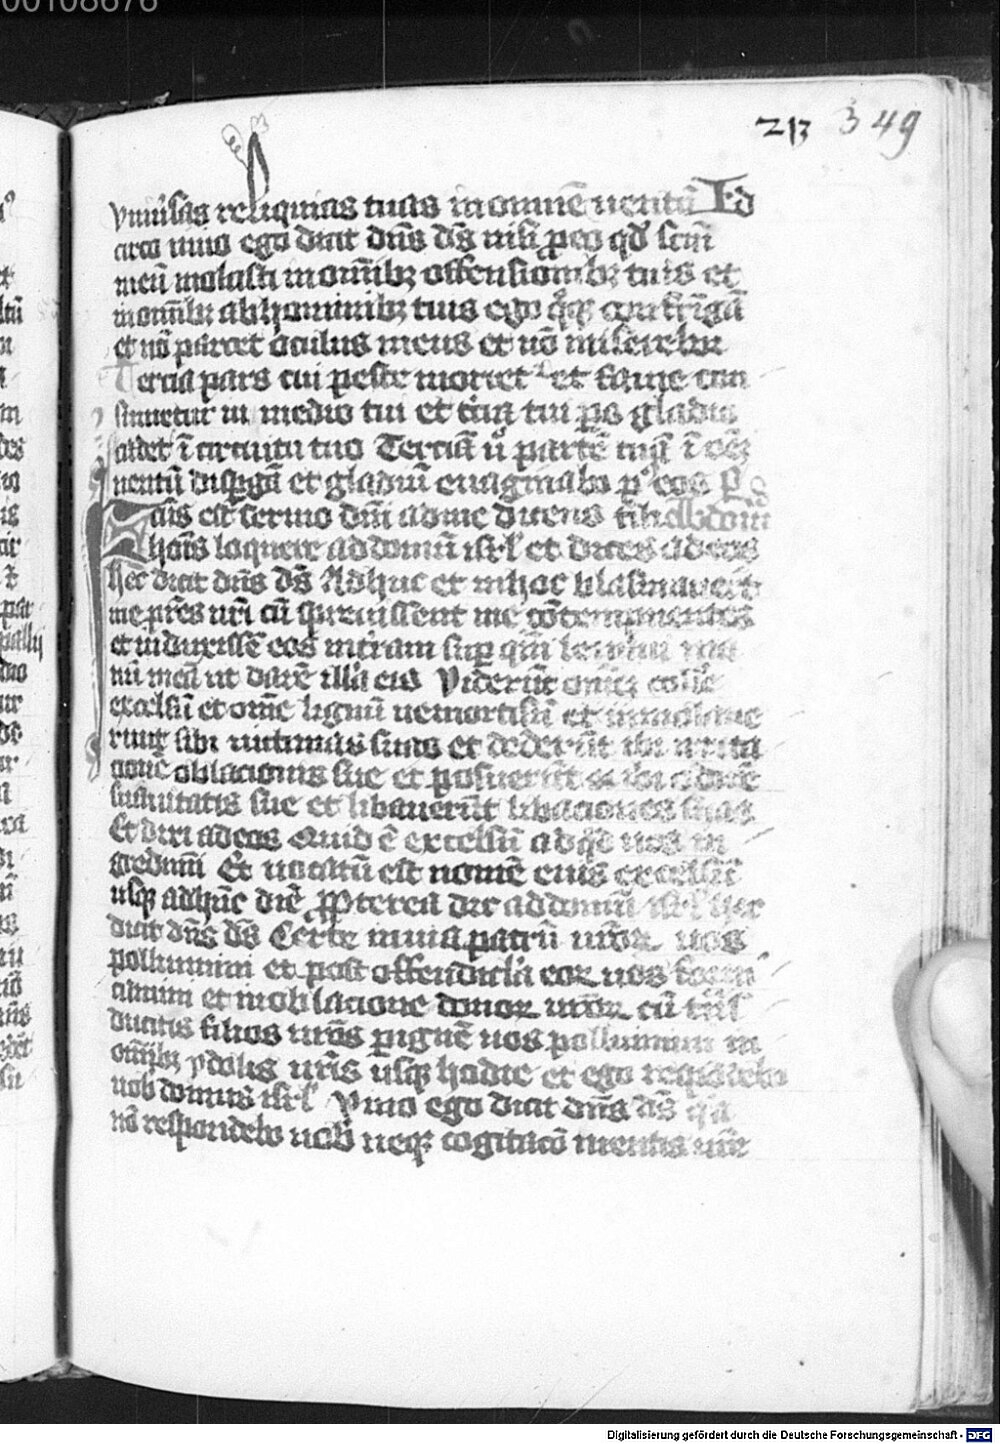 00108676
213 349
vniu'sas reliquias tuas in omnē uentū Id
circo uiuo ego dicit dn̄s d̄s nisi p eo qd' scm̄
meū uiolasti in omībꝫ offensionibꝫ tuis et
in omībꝫ abhominibꝫ tuis ego qͦqꝫ confrīgā
et nō parcet oculus meus et nō miserebor
Tercia pars tui peste moriet' et fame con
sumetur in medio tui et tcia tui ps gladio
cadet ī circuitu tuo Terciā ū partē tuā ī oēꝫ
uentū dispgā et gladiū euaginabo p' eos
Factus est sermo dn̄i ad me dicens fili
hoīs loquere ad domū isrl' et dices ad eos
hec dicit dn̄s d̄s Adhuc et in hoc blasfmauerūt
me pr̄es ur̄i cū spreuissent me cōtempnentes
et induxissē eos in t'ram sup qm̄ leuaui ma
nū meā ut darē illā eis Viderūt omēꝫ collē
excelsū et omē lignū nemorosū et immolaue
runt sibi uictimas suas et dederūt ibi irrita
cionē oblacionis sue et posuerūt ibi odorē
suauitatis sue et libauerūt libaciones suas
Et dixi ad eos Quid ē excelsū ad qd' uos in
gredimī Et uocatū est nomē eius excelsū
usqꝫ ad hūc diē Propterea dic ad domū isrl' hec
dicit dn̄s d̄s Certe in uia patrū ur̄oꝝ uos
polluimini et post offendicla eoꝝ uos forni
camini et in oblacione donoꝝ ur̄oꝝ cū
ducitis filios ur̄os p ignē uos polluimini in
omībꝫ ydolis ur̄is usqꝫ hodie et ego respōdebo
uob' domus isrl' Viuo ego dicit dn̄s d̄s q'a
nō respondebo uob' neqꝫ cogitacō mentis ur̄e
Digitalisierung gefördert durch die Deutsche Forschungsgemeinschaft - DFG